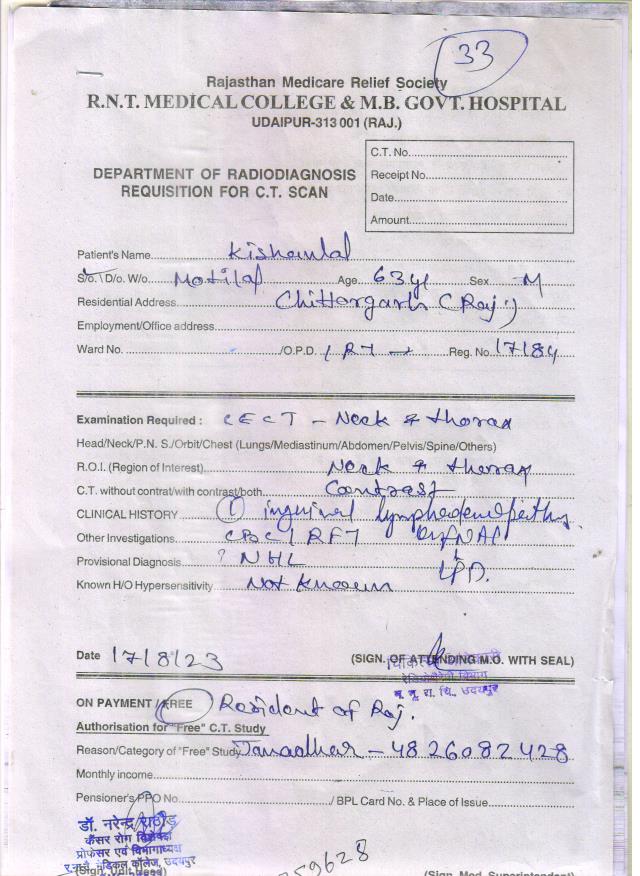 33
Rajasthan Medicare Relief Society
R.N.T. MEDICAL COLLEGE & M.B. GOVT. HOSPITAL
UDAIPUR-313 001 (RAJ.)
C.T. No.
DEPARTMENT OF RADIODIAGNOSIS
REQUISITION FOR C.T. SCAN
Receipt No.
Date
Amount
Patient's Name Kishanlal
S/o. \ D/o. W/o Motilal Age 63 yr Sex M
Residential Address Chittorgarh (Raj.)
Employment/Office address
Ward No. /O.P.D. / RT Reg. No. 17184
Examination Required : CECT - Neck & thorax
Head/Neck/P.N. S./Orbit/Chest (Lungs/Mediastinum/Abdomen/Pelvis/Spine/Others)
R.O.I. (Region of Interest) Neck & thorax
C.T. without contrat/with contrast/both Contrast
CLINICAL HISTORY inguinal lymphadenopathy
Other Investigations CBC / RFT FNAC
Provisional Diagnosis ? NHL LPD.
Known H/O Hypersensitivity Not Known
Date 17/8/23 (SIGN. OF ATTENDING M.O. WITH SEAL)
म. भू. रा. चि., उदयपुर
ON PAYMENT / FREE Resident of Raj.
Authorisation for "Free" C.T. Study
Reason/Category of "Free" Study Janaadhar - 4826082428
Monthly income
Pensioner's PPO No. / BPL Card No. & Place of Issue
डॉ. नरेन्द्र राठौड़
कैंसर रोग विशेषज्ञ
प्रोफेसर एवं विभागाध्यक्ष
मेडिकल कॉलेज, उदयपुर
59628